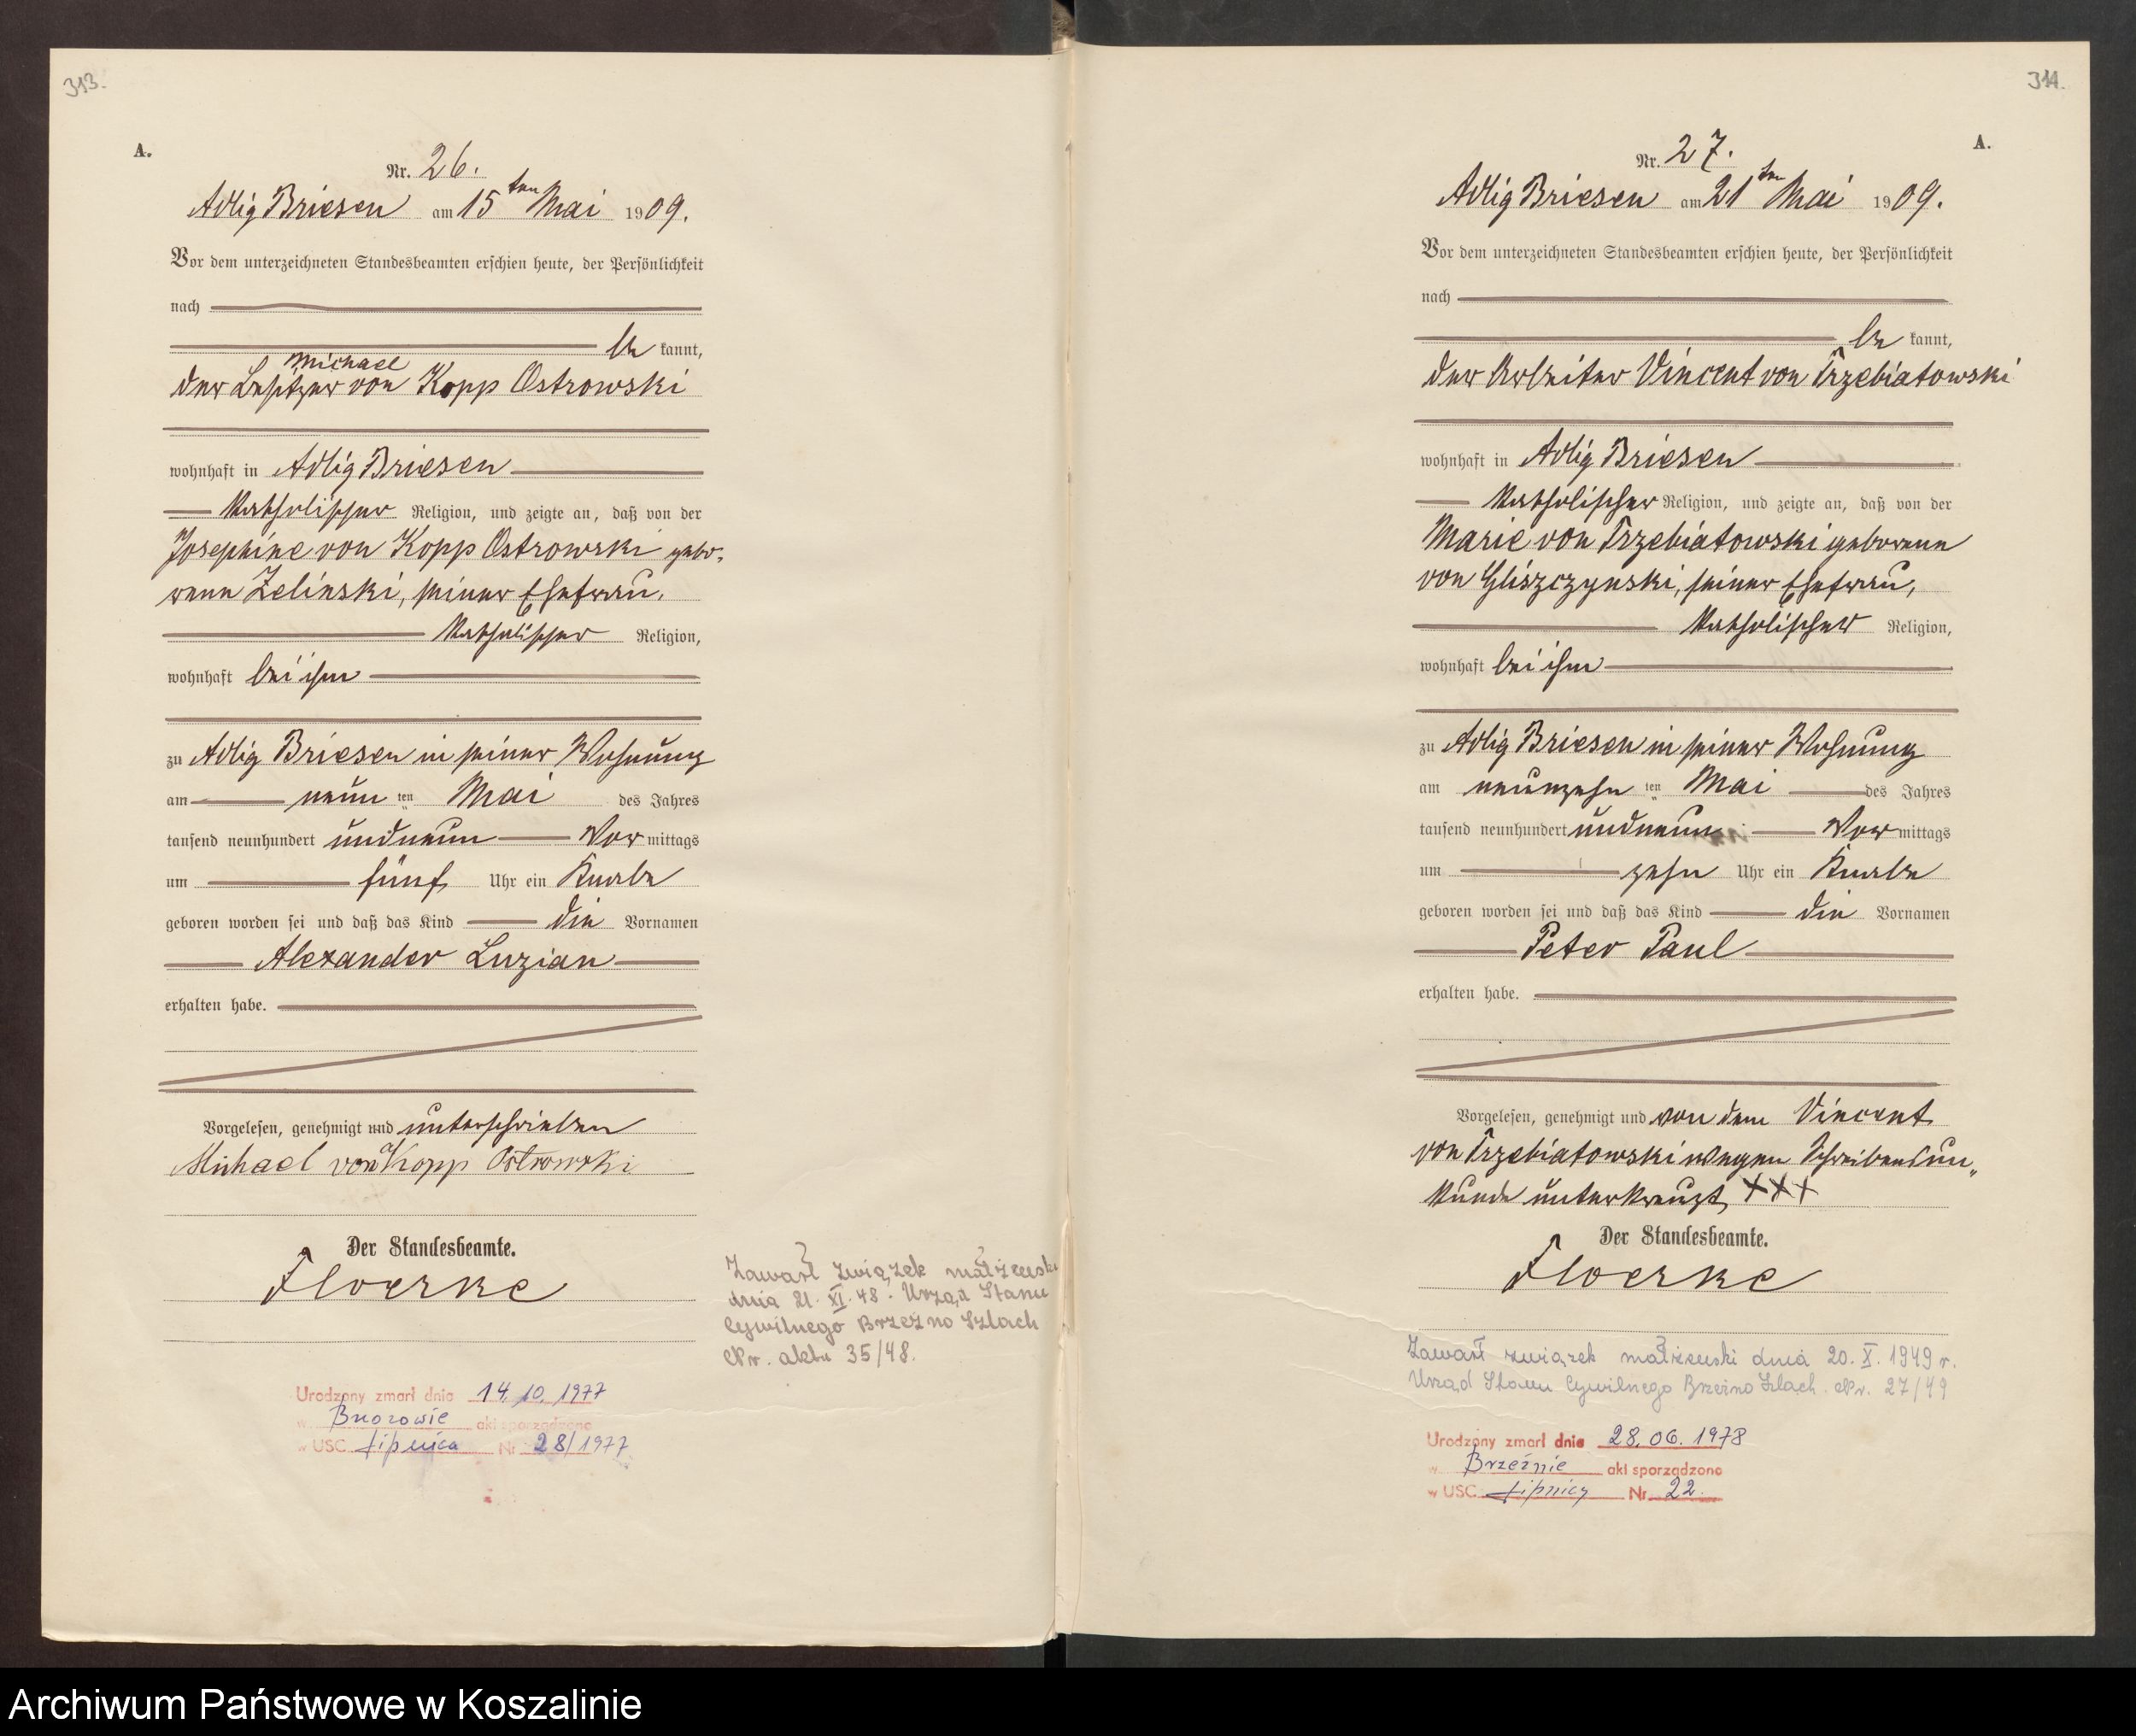 313.
A.
Nr. 26.
Adlig Briesen am 15ten Mai 1909.
Vor dem unterzeichneten Standesbeamten erschien heute, der Persönlichkeit
nach
be kannt,
Michael
der Besitzer von Kopp Ostrowski
wohnhaft in Adlig Briesen
Katholischer Religion, und zeigte an, daß von der
Josephine von Kopp Ostrowski gebo-
rene Zelinski, seiner Ehefrau,
Katholischer Religion,
wohnhaft bei ihm
zu Adlig Briesen in seiner Wohnung
am neun ten Mai des Jahres
tausend neunhundert undneun Vor mittags
um fünf Uhr ein Knabe
geboren worden sei und daß das Kind die Vornamen
Alexander Luzian
erhalten habe.
Vorgelesen, genehmigt und unterschrieben
Michael von Kopp Ostrowski
Der Standesbeamte.
Floerke
Zawarł związek małżeński
dnia 21. XI. 48. Urząd Stanu
Cywilnego Brzeźno Szlach
Nr. aktu 35/48.
Urodzony zmarł dnia 14.10.1977
w akt sporządzono
w USC Lipnica Nr 28/1977
314.
A.
Nr. 27.
Adlig Briesen am 21ten Mai 1909.
Vor dem unterzeichneten Standesbeamten erschien heute, der Persönlichkeit
nach
be kannt,
der Arbeiter Vincent von Trzebiatowski
wohnhaft in Adlig Briesen
Katholischer Religion, und zeigte an, daß von der
Marie von Trzebiatowski geborene
von Gliszczynski, seiner Ehefrau,
Katholischer Religion,
wohnhaft bei ihm
zu Adlig Briesen in seiner Wohnung
am neunzehn ten Mai des Jahres
tausend neunhundert undneun Vor mittags
um zehn Uhr ein Knabe
geboren worden sei und daß das Kind die Vornamen
Peter Paul
erhalten habe.
Vorgelesen, genehmigt und von dem Vincent
von Trzebiatowski wegen Schreibensun-
kunde unterkreuzt XXX
Der Standesbeamte.
Floerke
Zawarł związek małżeński dnia 20. X. 1949 r.
Urząd Stanu Cywilnego Brzeźno Szlach. Nr. 27/49
Urodzony zmarł dnia 28.06.1978
w Brzeźnie akt sporządzono
w USC Lipnicy Nr 22
Archiwum Państwowe w Koszalinie